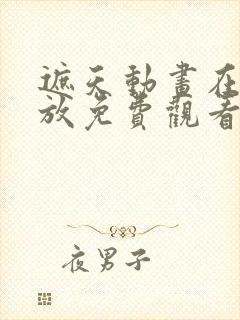 遮天動畫在
放免費觀看
夜男子